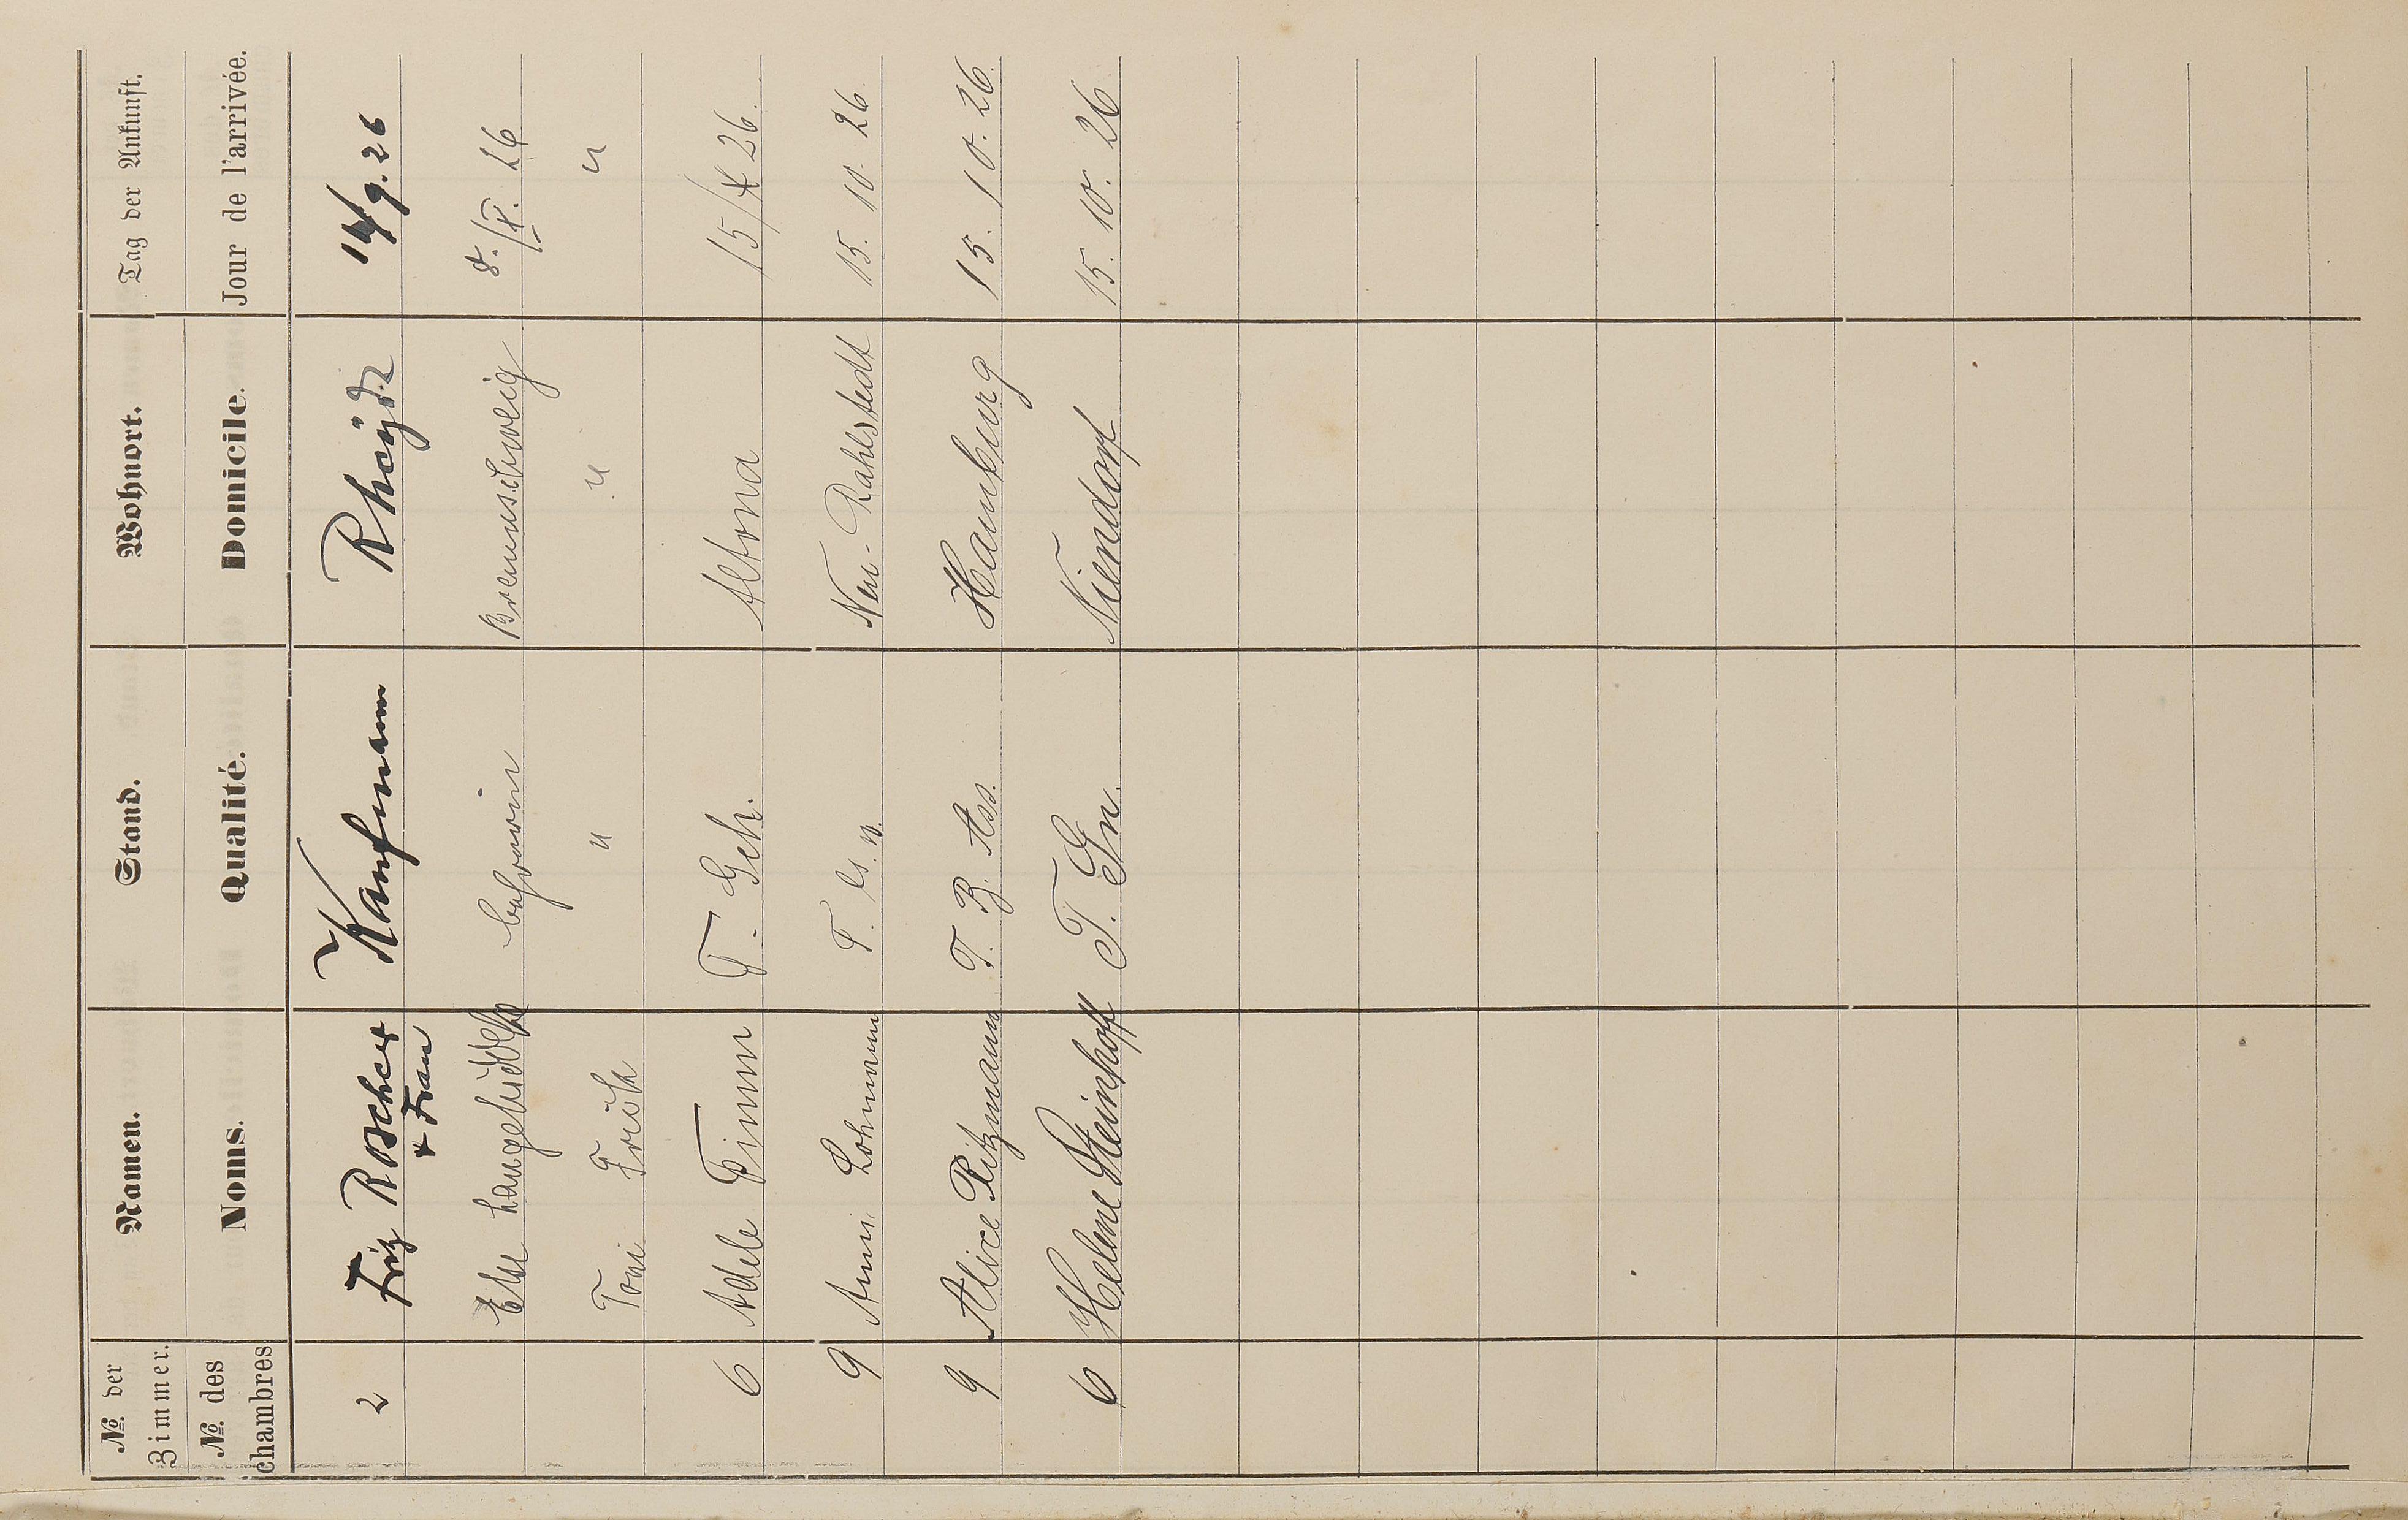 No. der Zimmer. Namen. Stand. Wohnort. Tag der Ankunft.
No. des chambres Noms. Qualité. Domicile. Jour de l'arrivée.
2 Friz Roscher Kaufmann Rheydt 14/9. 26
+ Frau
Else Braunschweig 8./X. 26
Toni " " "
6 Adele Timm T. Geh. Altona 15/X 26.
9 Anni Lohmann T. Neu-Rahlstedt 15. 10. 26.
9 Alice Pitzmann T. B. Ass. Hamburg 15. 10. 26.
6 Helene Steinhoff T. Gn. Niendorf 15. 10. 26